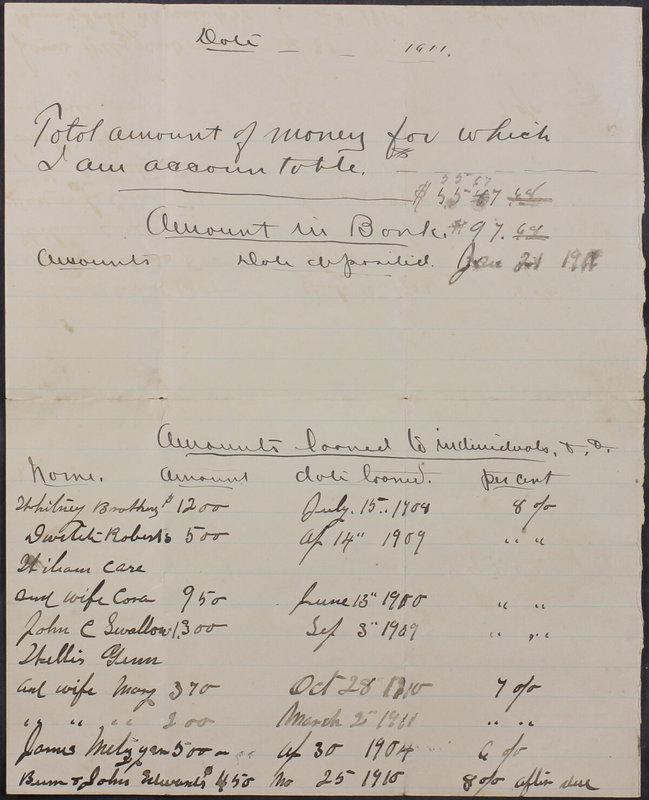 Date — — 1911.
Total amount of money for which
I am accountable.
5567
$ 5567.64
Amount in Bank. $97.64
Amounts Date deposited. Jan 21 1911
Amounts loaned to individuals, &, &.
Name. Amount date loaned. per cent
Whitney Brothers $ 1200 July. 15.. 1908 8 %
Roberts 500 Ap 14" 1909 " "
William Care
and wife Cora 950 June 13" 1910 " "
John C Swallow 1,300 Sep 3" 1909 " "
Willis Genn
and wife Mary 370 Oct 28 1910 7 %
" " " 200 March 2" 1911 " "
James Metzger 500 — Ap 30 1904 6 %
& John Edwards $ 450 No 25 1910 8 % after due